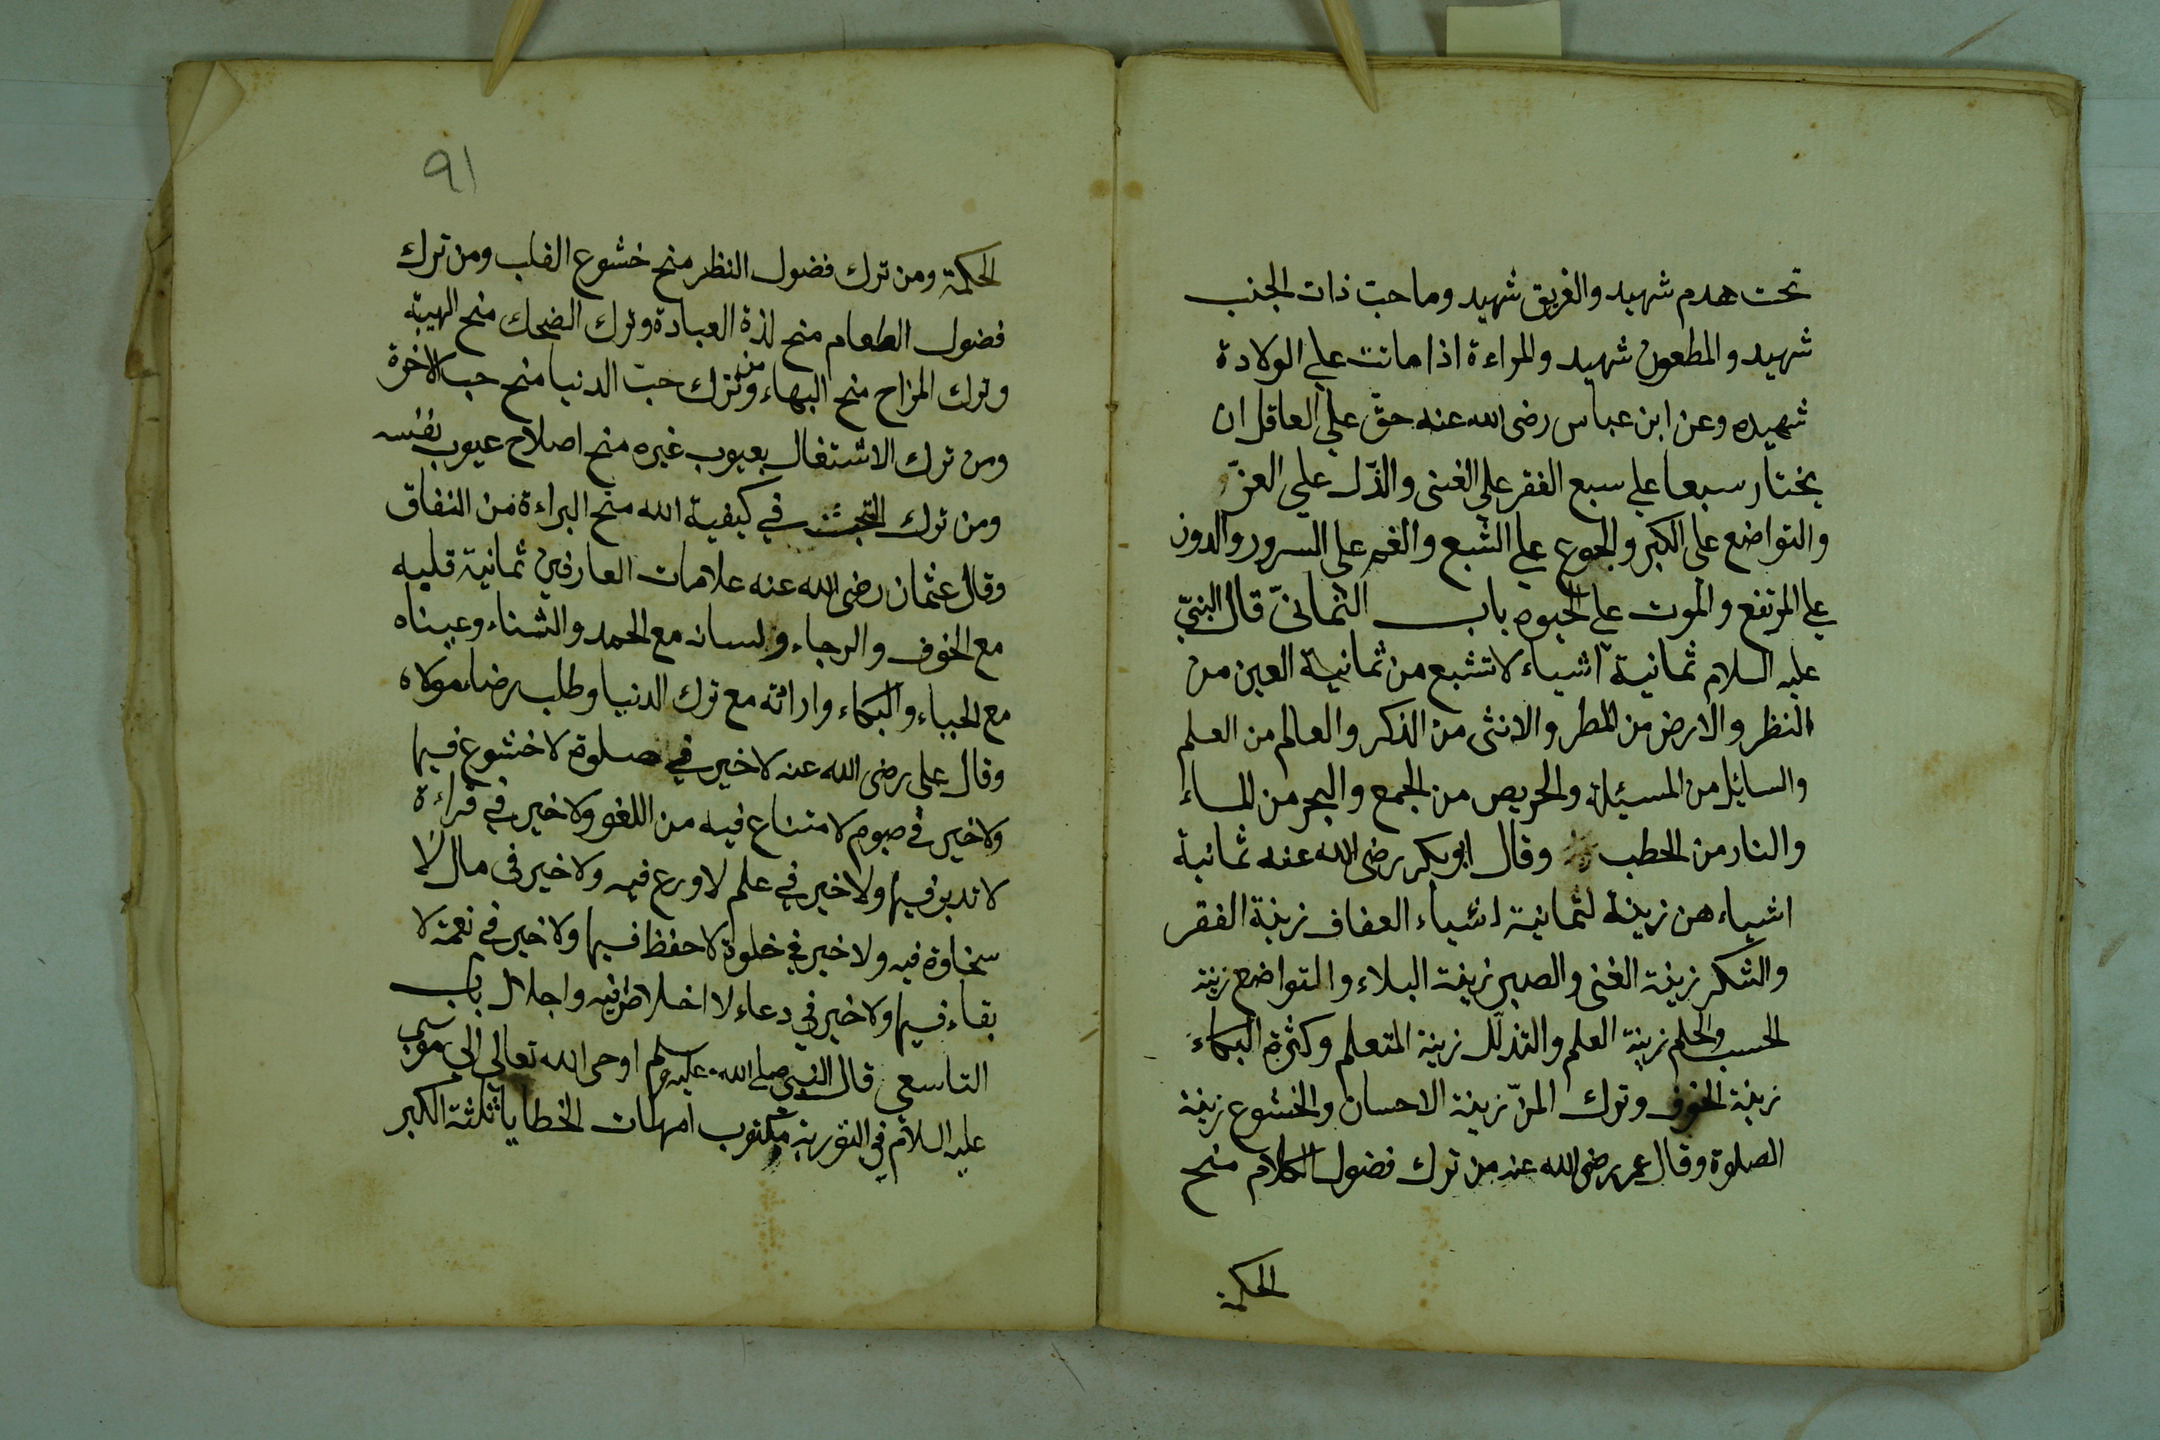 تحت هدم شهيد والغريق شهيد وصاحب ذات الجنب
شهيد والمطعون شهيد والمراءة اذا ماتت على الولادة
شهيده وعن ابن عباس رضى الله عنه حقّ على العاقل ان
يختار سبعا على سبع الفقر على الغنى والذّل على العزّ
والتواضع على الكبر والجوع على الشبع والغم على السرور والدون
على المرتفع والموت على الحيوة باب الثمانىّ قال النبىّ
عليه السلام ثمانية اشياء لا تشبع من ثمانية العين من
النظر والارض من المطر والانثى من الذكر والعالم من العلم
والسايل من المسيئلة والحريص من الجمع والبحر من الماء
والنار من الحطب وقال ابو بكر رضى الله عنه ثمانية
اشياء هن زينة لثمانية اشياء العفاف زينة الفقر
والشكر زينة الغنى والصبر زينة البلاء والتواضع زينة
الحسب والحلم زينة العلم والتذلّل زينة المتعلم وكثرة البكاء
زينة الخوف وترك المنّ زينة الاحسان والخشوع زينة
الصلوة وقال عمر رضى الله عنه من ترك فضول الكلام منح
الحكمة
٩١
الحكمة ومن ترك فضول النظر منح خشوع القلب ومن ترك
فضول الطعام منح لذة العبادة وترك الضحك منح الهيبة
وترك المزاح منح البهاء ومن ترك حب الدنيا منح حب الاخرة
ومن ترك الاشتغال بعيوب غيره منح اصلاح عيوب نفسه
ومن ترك التجسّس في كيفية الله منح البراءة من النفاق
وقال عثمان رضى الله عنه علامات العارفين ثمانية قلبه
مع الخوف والرجاء ولسانه مع الحمد والثناء وعيناه
مع الحياء والبكاء وارادته مع ترك الدنيا وطلب رضاء مولاه
وقال على رضى الله عنه لا خير في صلوة لا خشوع فيها
ولا خير في صوم لا متناع فيه من اللغو ولا خير في قراءة
لا تدبر فيها ولا خير في علم لا ورع فيه ولا خير في مال لا
سخاوة فيه ولا خير في خلوة لا حفظ فيها ولا خير في نعمة لا
بقاء فيها ولا خير في دعاء لا اخلاص فيه واجلال باب
التاسعي قال النبي صلى الله عليه وسلم اوحى الله تعالى الى موسى
عليه السلام في التورية مكتوب امهات الخطايا ثلثة الكبر